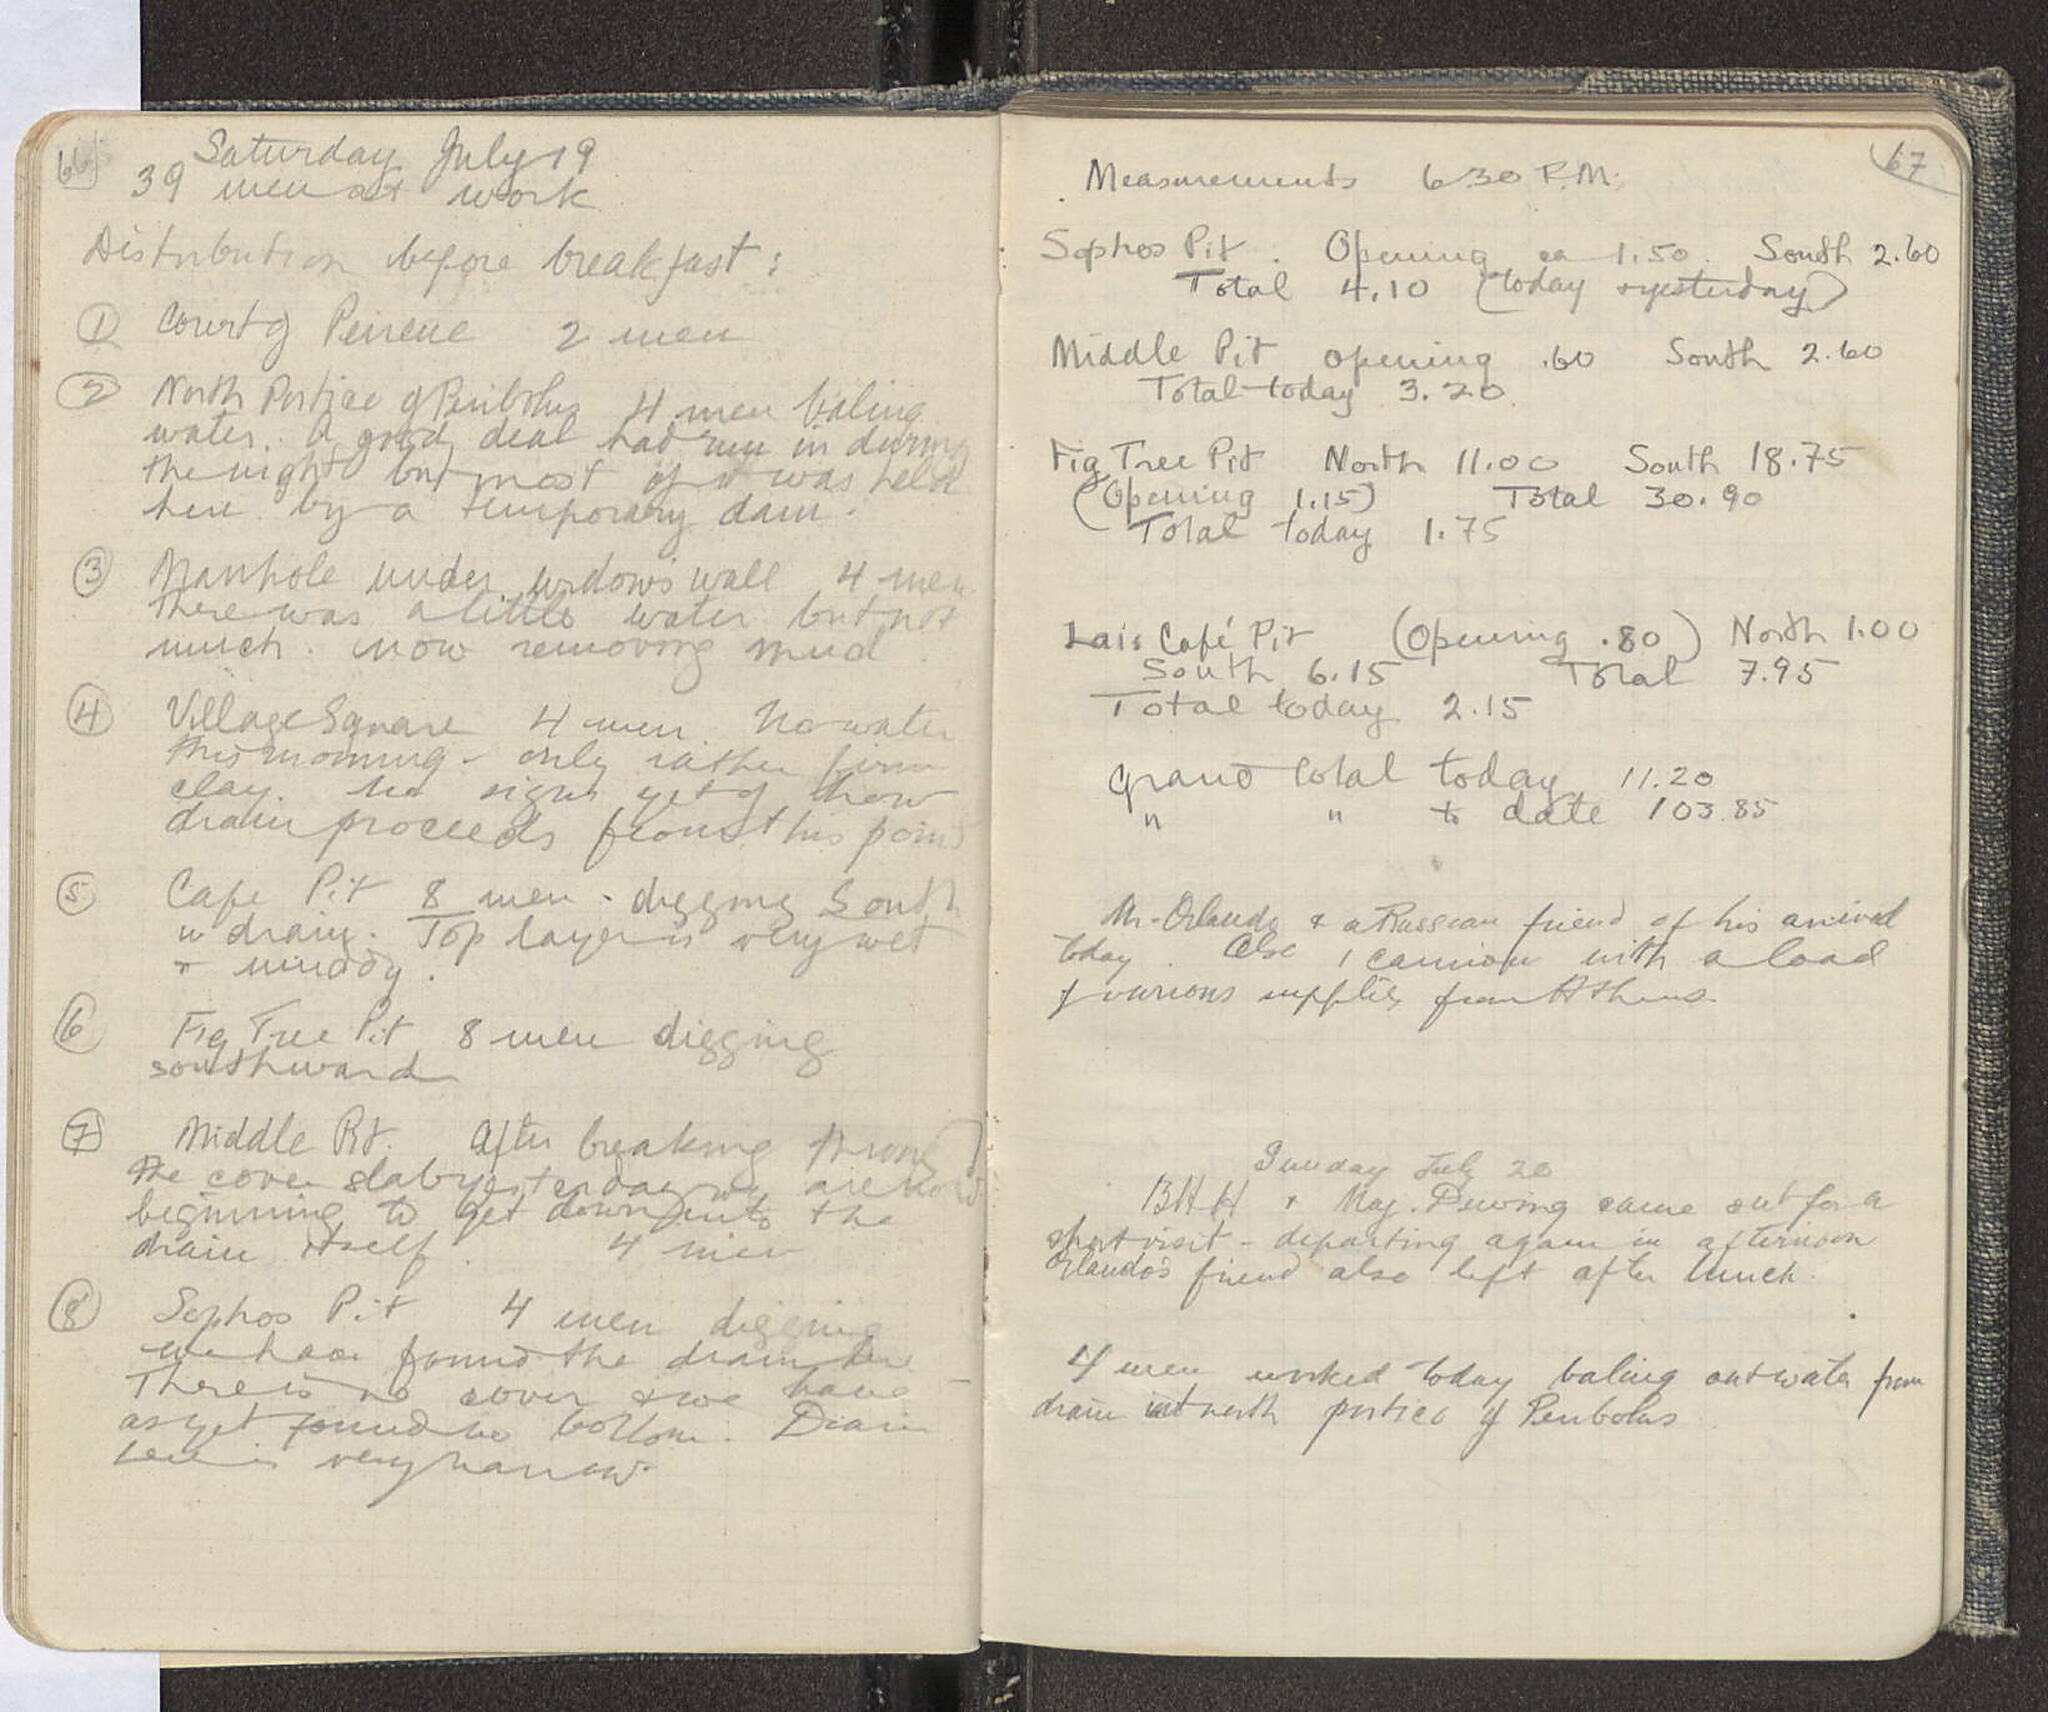 66
Saturday July 19
39 men at work
Distribution before breakfast:
① Court of Peirene 2 men
② North Portico of Peribolus 4 men baling
water. A good deal had run in during
the night but most of it was held
here by a temporary dam.
③ Manhole under widow's wall 4 men
There was a little water but not
much. Now removing mud.
④ Village Square 4 men. No water
this morning - only rather firm
clay. No signs yet of how
drain proceeds from this point
⑤ Cafe Pit 8 men - digging South
in drain. Top layer is very wet
+ muddy.
⑥ Fig Tree Pit 8 men digging
southward
⑦ Middle Pit. After breaking through
the cover slab yesterday we are now
beginning to get down into the
drain itself. 4 men
⑧ Sophos Pit 4 men digging
we have found the drain here
There is no cover & we have
as yet found no bottom. Drain
here is very narrow.
67
Measurements 6 30 P.M.
Sophos Pit. Opening ca 1.50. South 2.60
Total 4.10 (today + yesterday)
Middle Pit opening .60 South 2.60
Total today 3.20
Fig Tree Pit North 11.00 South 18.75
(Opening 1.15) Total 30.90
Total today 1.75
Lais Café Pit (Opening .80) North 1.00
South 6.15 Total 7.95
Total today 2.15
Grand total today 11.20
" " to date 103.85
Mr. Orlando & a Russian friend of his arrived
today. Also 1 camion with a load
of various supplies from Athens.
Sunday July 20
BHH + Maj. Dewing came out for a
short visit - departing again in afternoon
Orlando's friend also left after lunch.
4 men worked today baling out water from
drain at north portico of Peribolus